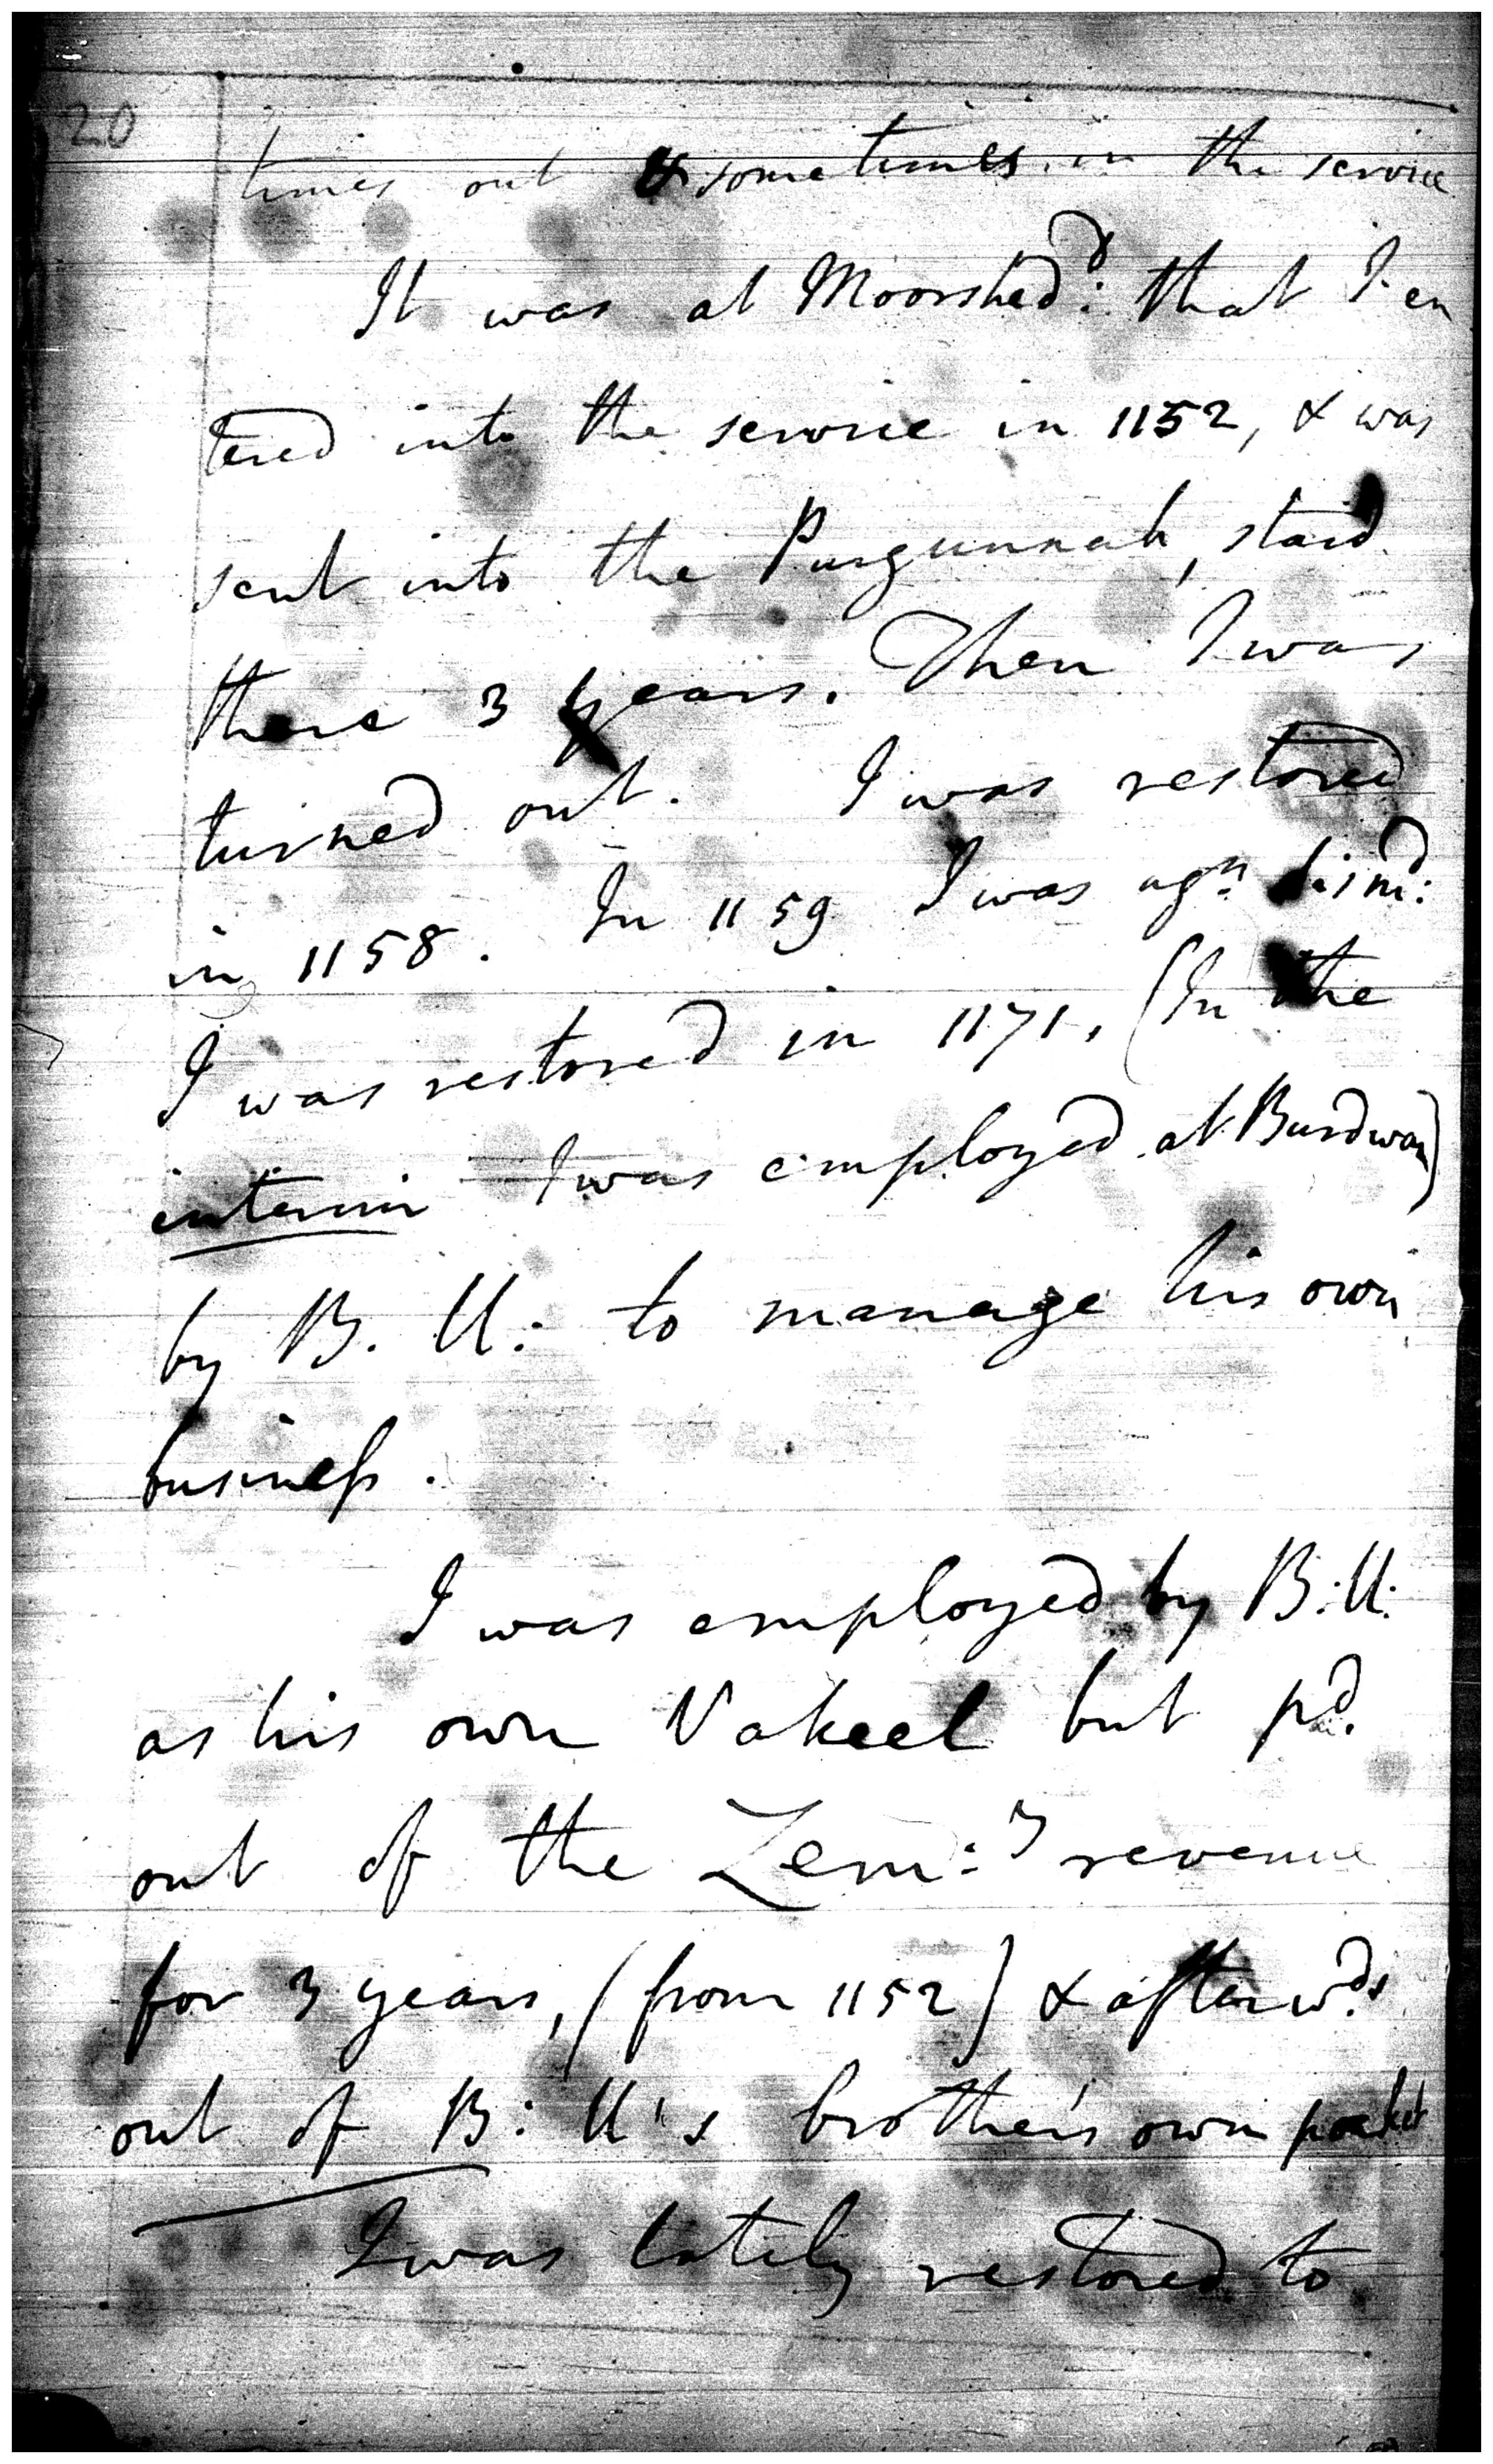 20
times out & sometimes in the service
It was at Moorshed:d that I en
tered into the service in 1152, & was
sent into the Purgunnah, staid
there 3 years. Then I was
turned out. I was restored
in 1158. In 1159 I was agn dism:d
I was restored in 1171, (In the
interim I was employed at Burdwan)
by B. U: to manage his own
business.
I was employed by B: U:
as his own Vakeel but pd.
out of the Zem:y revenue
for 3 years, (from 1152) & afterwds
out of B: U's brother's own pocket
I was lately restored to